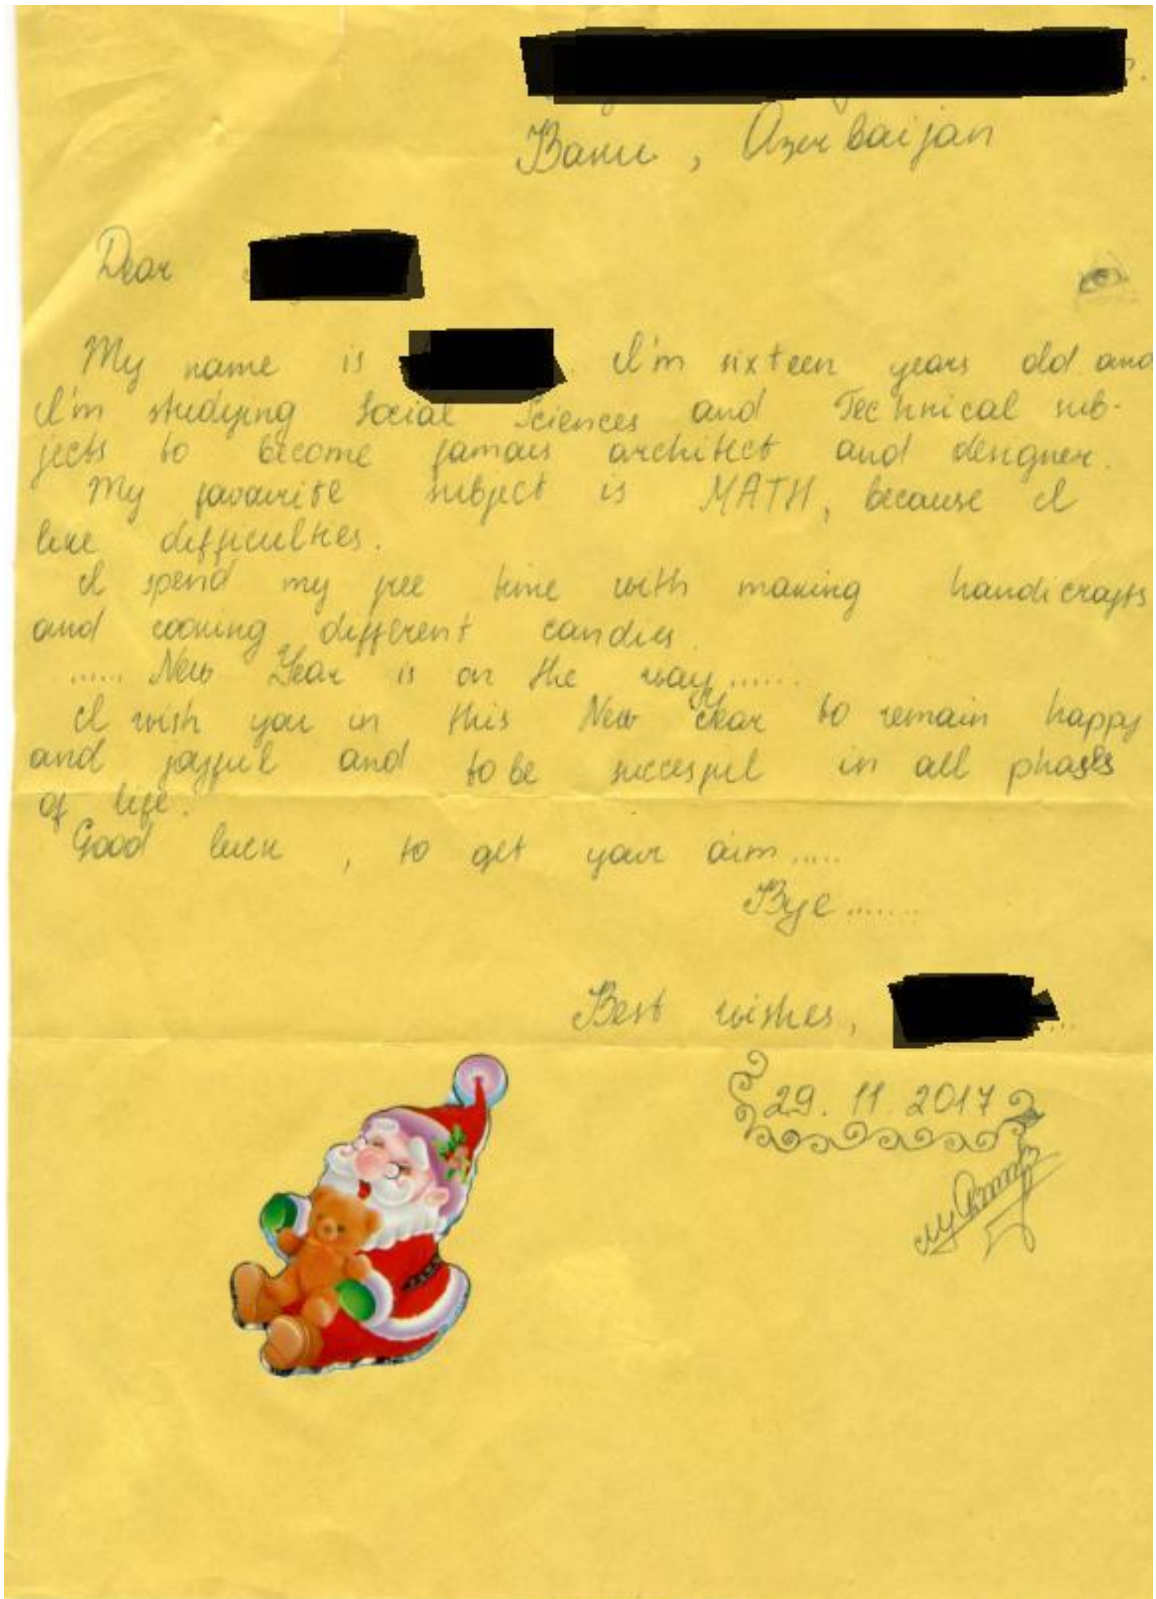 Baku, Azerbaijan
Dear
My name is I'm sixteen years old and
I'm studying Social Sciences and Technical sub-
jects to become famous architect and designer.
My favourite subject is MATH, because I
like difficulties.
I spend my free time with making handicrafts
and cooking different candies.
...... New Year is on the way......
I wish you in this New Year to remain happy
and joyful and to be succesful in all phases
of life.
Good luck, to get your aim.....
Bye.......
Best wishes,
29. 11 2017